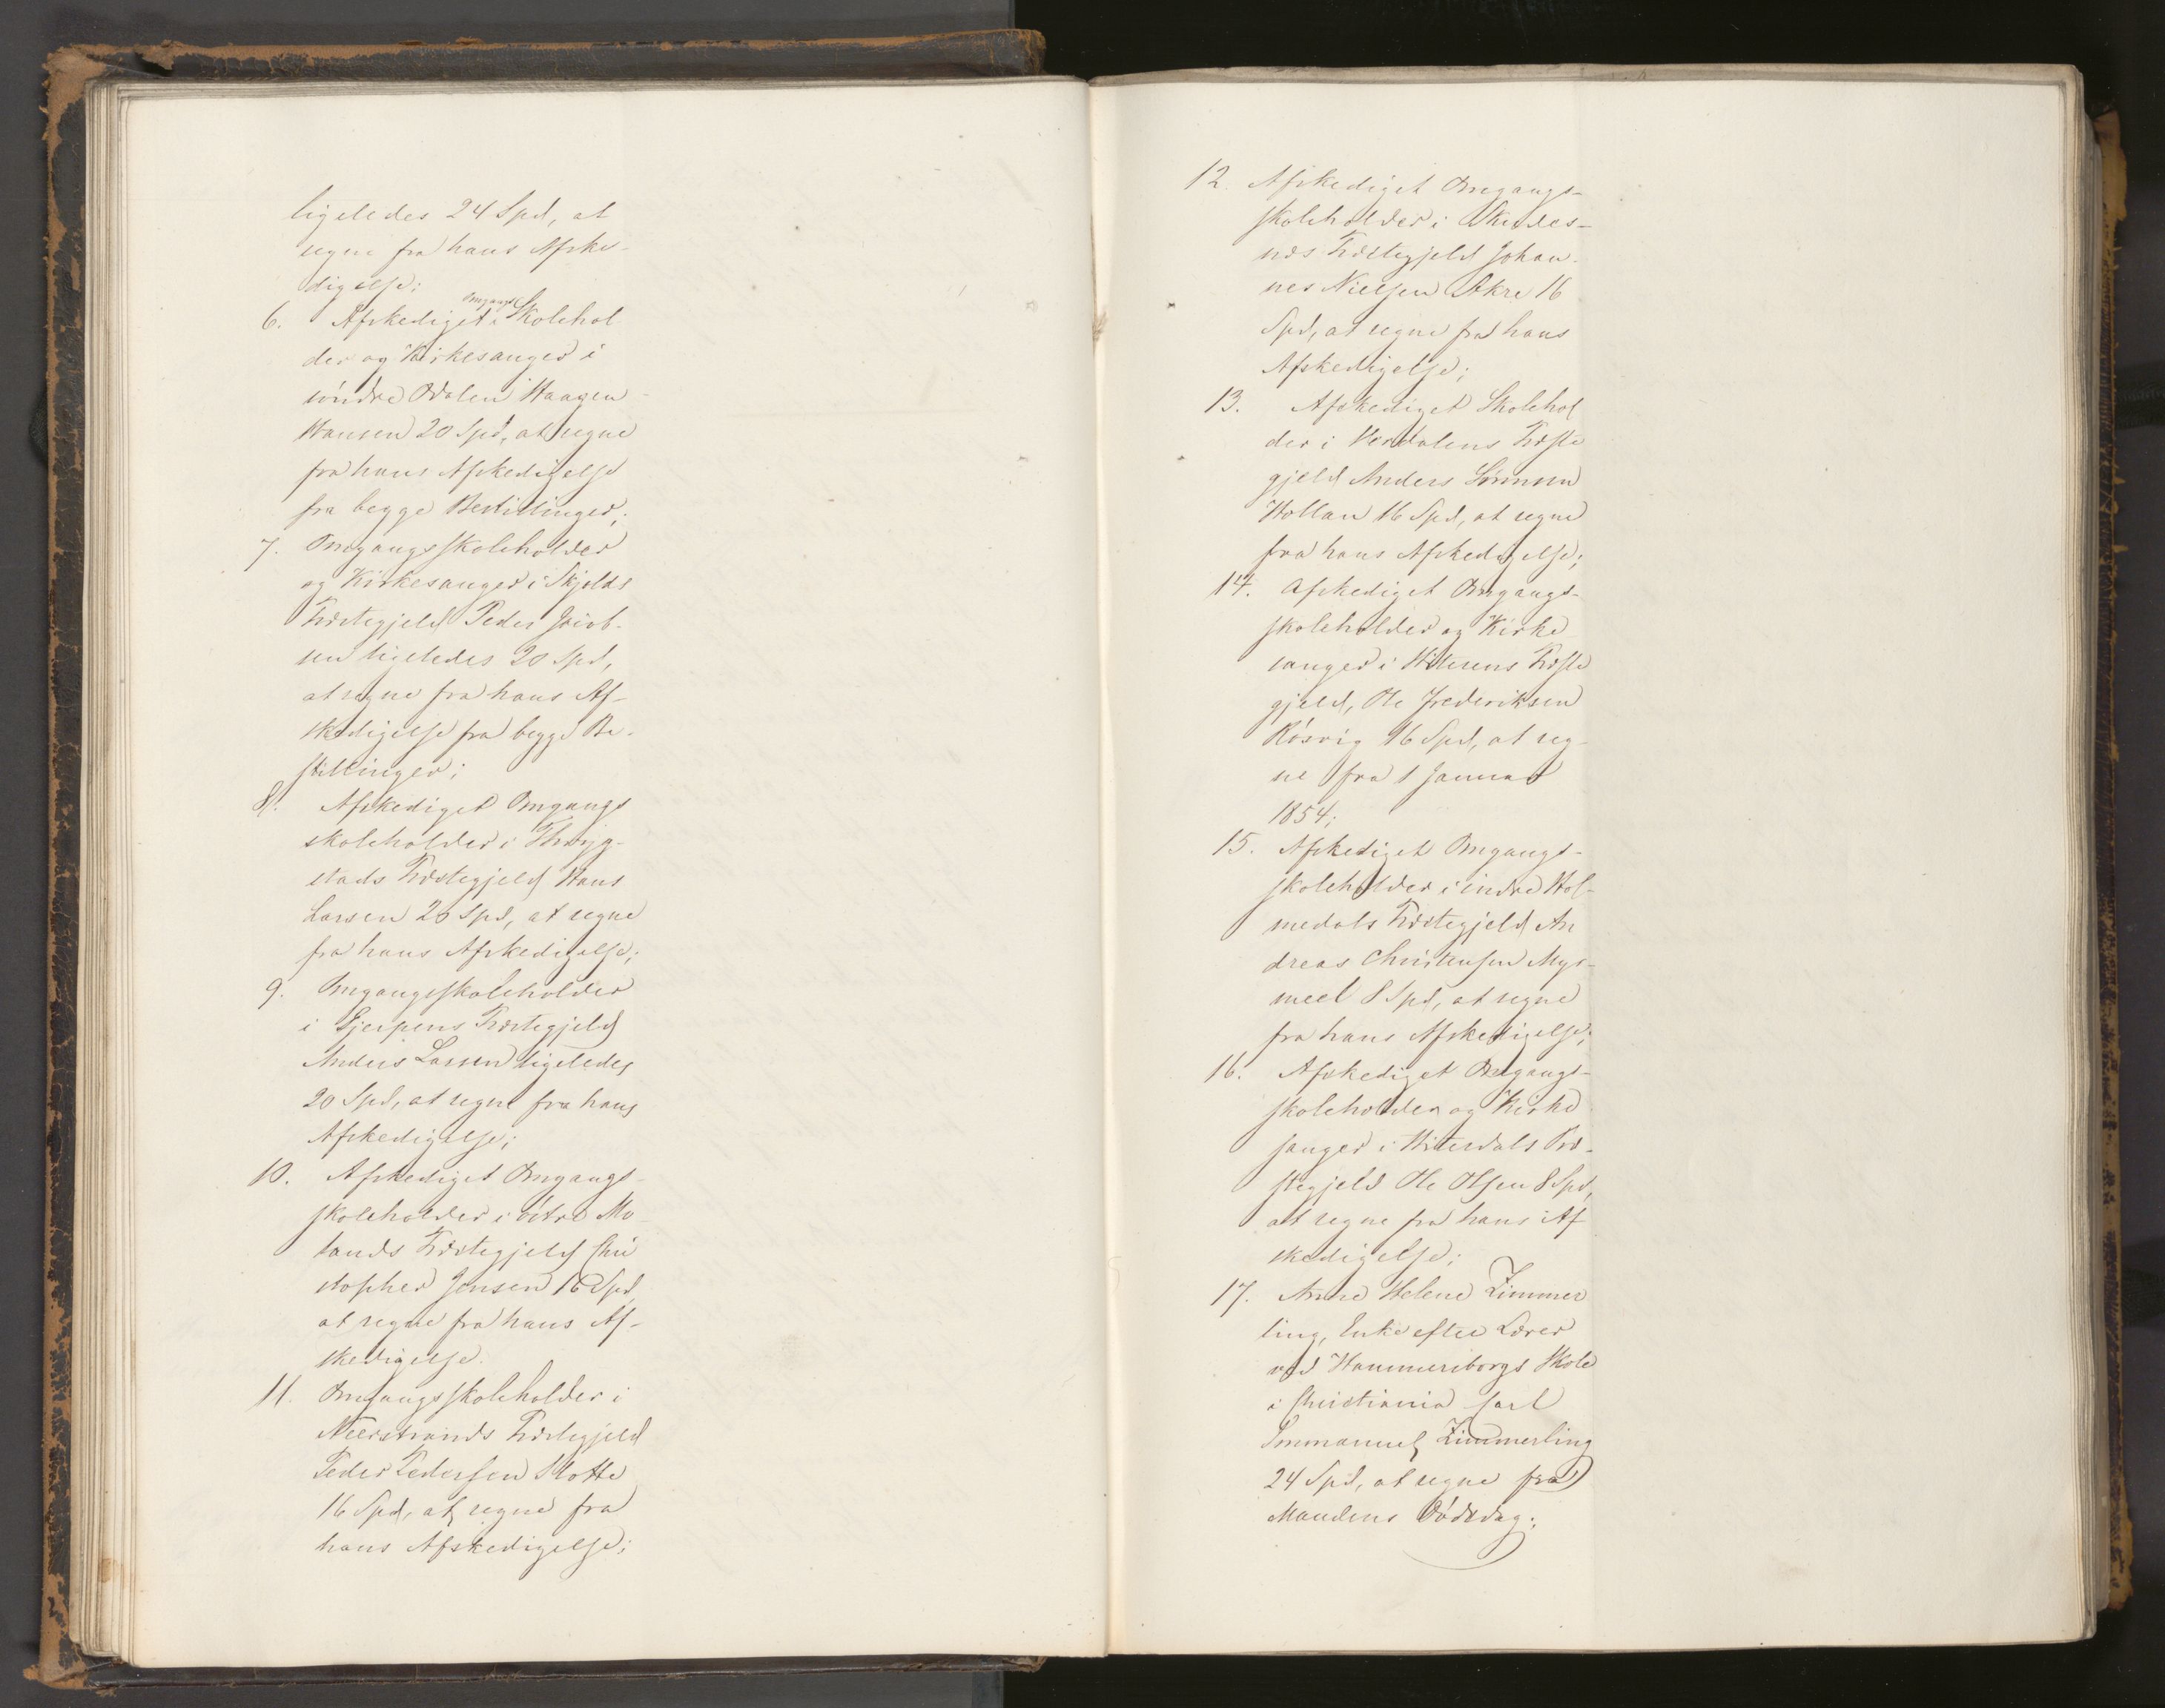 ligeledes 24 Spd, at
regne fra hans Afske-
digelse;
6. Afskediget Omgangs Skolehol
der og Kirkesanger i
söndre Odalen Haagen
Hansen 20 Spd, at regne
fra hans Afskedigelse
fra begge Bestillinger;
7. Omgangsskoleholder
og Kirkesanger i Skjolds
Præstegjeld Peder Jacob-
sen ligeledes 20 Spd,
at regne fra hans Af-
skedigelse fra begge Be-
stillinger;
8. Afskediget Omgangs
skoleholder i Thryg-
stads Præstegjeld Hans
Larsen 20 Spd, at regne
fra hans Afskedigelse;
9. Omgangsskoleholder
i Gjerpens Præstegjeld
Anders Larsen ligeledes
20 Spd, at regne fra hans
Afskedigelse;
10. Afskediget Omgangs-
skoleholder i östre Mo-
lands Præstegjeld Chri
stopher Jensen 16 Spd,
at regne fra hans Af-
skedigelse.
11. Omgangsskoleholder i
Neerstrands Præstegjeld
Peder Pedersen Slotte
16 Spd, at regne fra
hans Afskedigelse;
12. Afskediget Omgangs-
skoleholder i Skudes-
næs Præstegjeld Johan-
nes Nielsen Aakre 16
Spd, at regne fra hans
Afskedigelse;
13. Afskediget Skolehol
der i Verdalens Præste
gjeld Anders Sörensen
Hollan 16 Spd, at regne
fra hans Afskedigelse;
14. Afskediget Omgangs-
skoleholder og Kirke
sanger i Hiterens Præste
gjeld, Ole Frederiksen
Rösvig 16 Spd, at reg-
ne fra 1 Januar
1854;
15. Afskediget Omgangs-
skoleholder i indre Hol-
medals Præstegjeld An
dreas Christensen Myr-
meel 8 Spd, at regne
fra hans Afskedigelse;
16. Afskediget Omgangs-
skoleholder og Kirke
sanger i Hiterdals Præ-
stegjeld Ole Olsen 8 Spd,
at regne fra hans Af
skedigelse;
17. Anne Helene Zimmer
ling, Enke efter Lærer
ved Hammersborgs Skole
i Christiania Carl
Immanuel Zimmerling
24 Spd, at regne fra
Mandens Dödsdag;